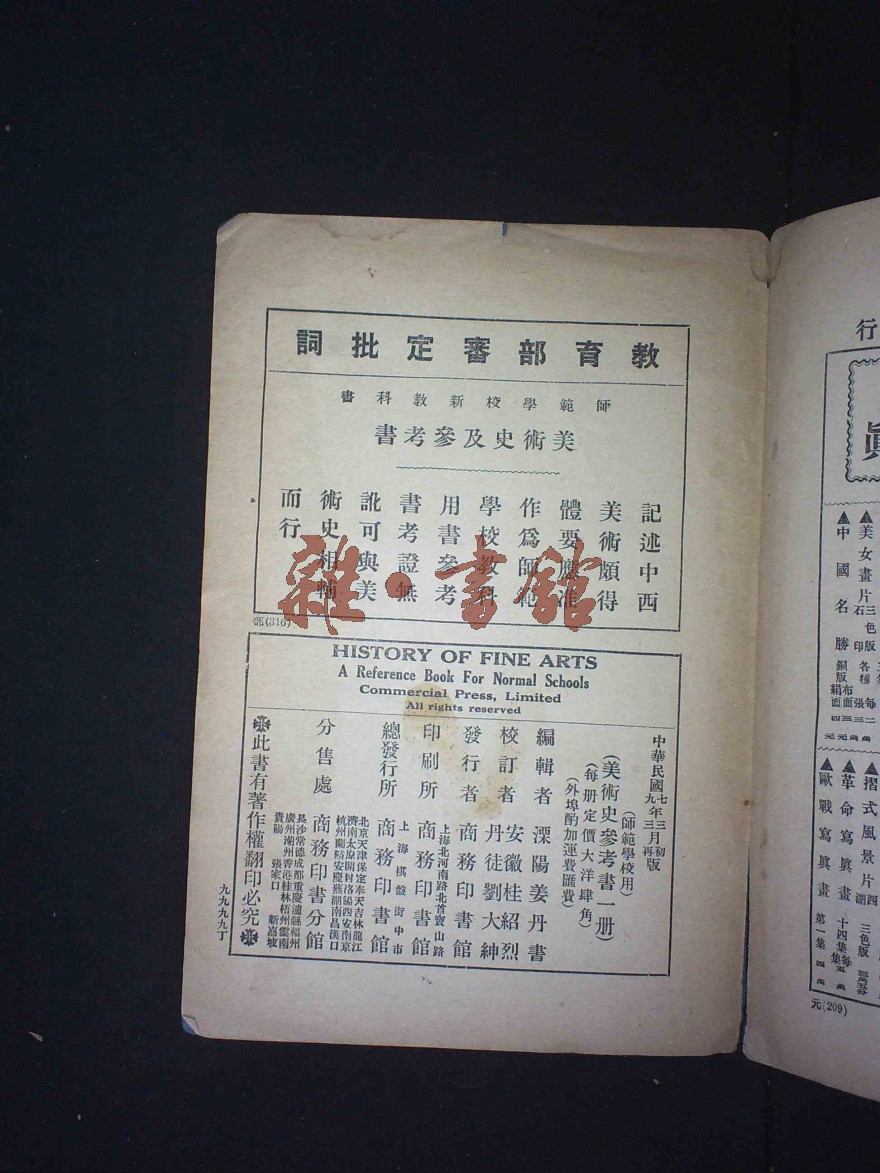 教育部審定批詞
師範學校新教科書
美術史及參考書
記述中西
美術頗得
體要應准
作爲師範
學校教科
用書參考
書考證無
訛可與美
術史相輔
而行
部(316)
雜·書館
HISTORY OF FINE ARTS
A Reference Book For Normal Schools
Commercial Press, Limited
All rights reserved
中華民國七年三月初版
九年三月再版
(師範學校用)
(美術史參考書一册)
(每册定價大洋肆角)
(外埠酌加運費匯費)
編輯者 溧陽姜丹書
校訂者 安徽桂紹烈
丹徒劉大紳
發行者 商務印書館
印刷所 上海北河南路北首寶山路
商務印書館
總發行所 上海棋盤街中市
商務印書館
分售處 北京天津保定奉天吉林龍江
濟南太原開封洛陽西安南京
杭州蘭谿安慶蕪湖南昌漢口
商務印書分館
長沙常德成都重慶瀘縣福州
廣州潮州香港桂林梧州雲南
貴陽 張家口 新嘉坡
此書有著作權翻印必究
九九九九丁
行
眞
▲美女畫片
三色版
石印
▲中國名勝
▲摺式風景片
三色版
▲革命寫眞畫
十四集
▲歐戰寫眞畫
第一集
元(209)